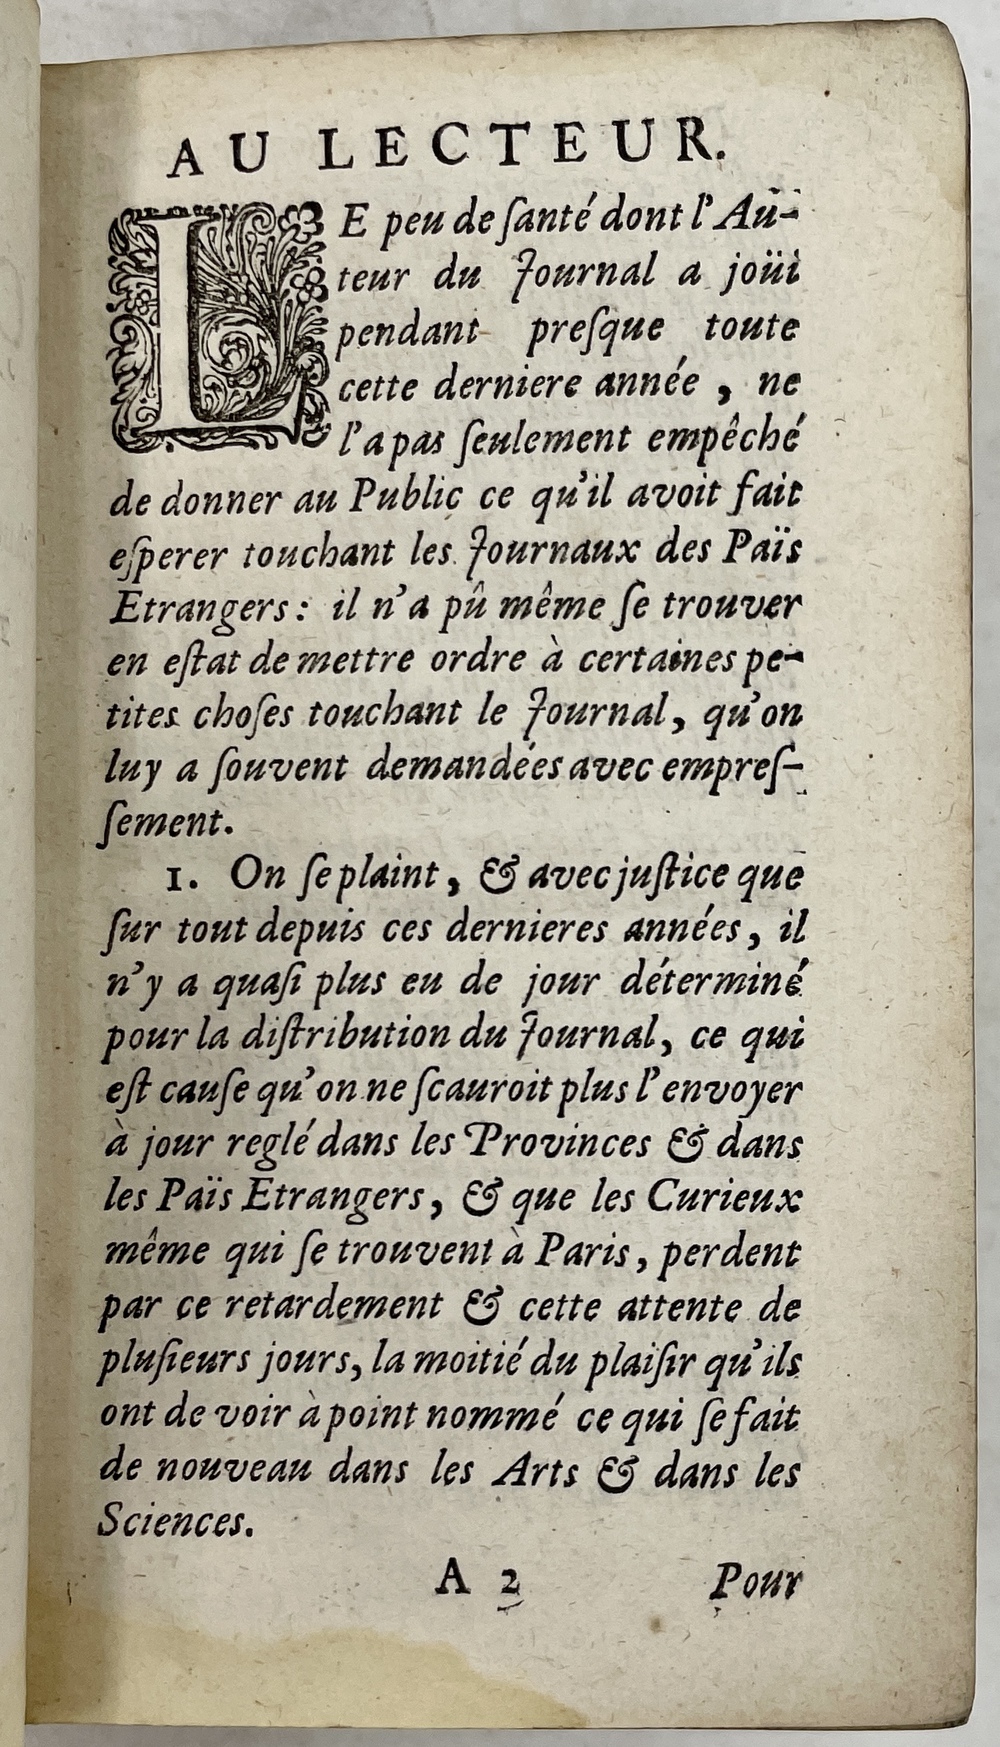 AU LECTEUR.
LE peu de ſanté dont l'Au-
teur du Journal a joüi
pendant preſque toute
cette derniere année, ne
l'a pas ſeulement empêché
de donner au Public ce qu'il avoit fait
eſperer touchant les Journaux des Païs
Etrangers: il n'a pû même ſe trouver
en eſtat de mettre ordre à certaines pe-
tites choſes touchant le Journal, qu'on
luy a ſouvent demandées avec empreſ-
ſement.
1. On ſe plaint, & avec juſtice que
ſur tout depuis ces dernieres années, il
n'y a quaſi plus eu de jour déterminé
pour la diſtribution du Journal, ce qui
eſt cauſe qu'on ne ſcauroit plus l'envoyer
à jour reglé dans les Provinces & dans
les Païs Etrangers, & que les Curieux
même qui ſe trouvent à Paris, perdent
par ce retardement & cette attente de
pluſieurs jours, la moitié du plaiſir qu'ils
ont de voir à point nommé ce qui ſe fait
de nouveau dans les Arts & dans les
Sciences.
A 2 Pour